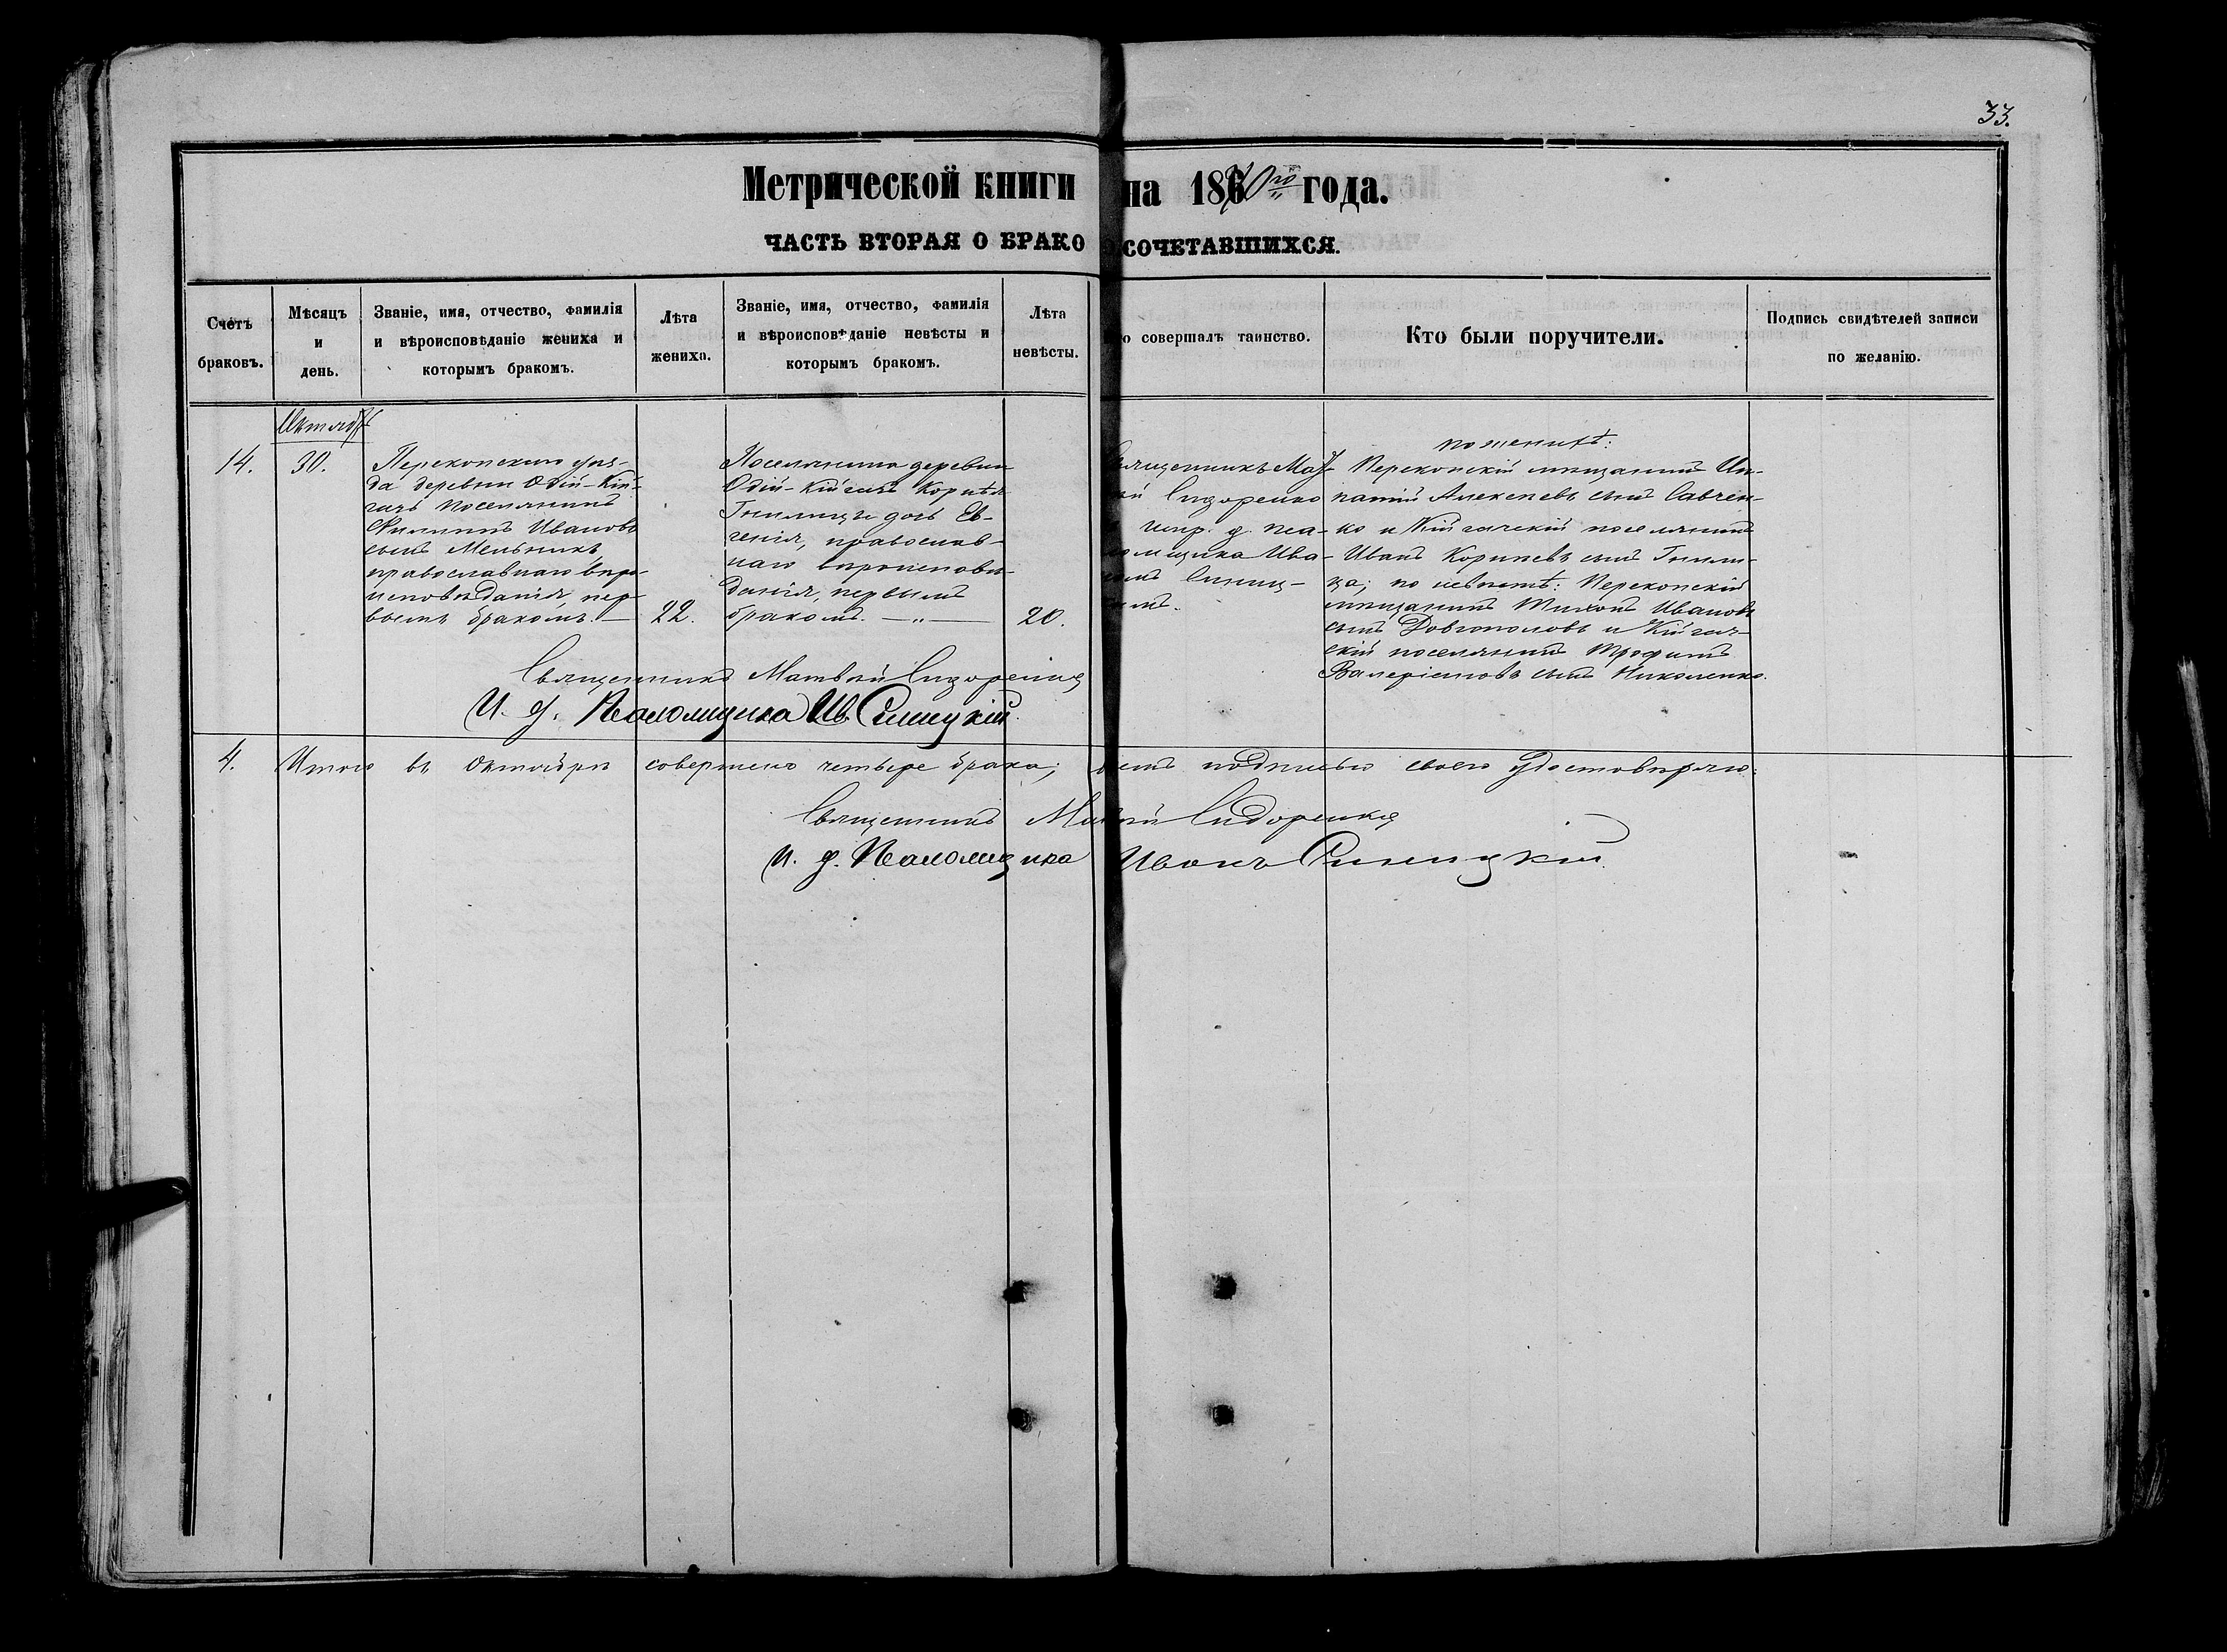 33.
Метрической книги на 1870го года.
ЧАСТЬ ВТОРАЯ О БРАКОСОЧЕТАВШИХСЯ.
Счетъ
браковъ.
Мѣсяцъ
и
день.
Званіе, имя, отчество, фамилія
и вѣроисповѣданіе жениха и
которымъ бракомъ.
Лѣта
жениха.
Званіе, имя, отчество, фамилія
и вѣроисповѣданіе невѣсты и
которымъ бракомъ.
Лѣта
невѣсты.
о совершалъ таинство.
Кто были поручители.
Подпись свидѣтелей записи
по желанію.
Октябрь
14.
30.
Перекопскаго уѣз-
да деревни Адій-Кій-
гачъ поселянинъ
Филиппъ Ивановъ
сынъ Мельникъ,
православнаго вѣро-
исповѣданія, пер-
вымъ бракомъ. —
22.
Поселянина деревни
Адій-Кійгачъ Корнѣя
Гнилицы дочь Ев-
генія, православ-
наго вѣроисповѣ-
данія, первымъ
бракомъ. — „ —
20.
Священникъ Мат-
вѣй Сидоренко
испр. д. пса-
ломщика Ива-
номъ Синиц-
кимъ.
по женихѣ:
Перекопскій мѣщанинъ Иг-
натій Алексѣевъ сынъ Савчен-
ко и Кійгачскій поселянинъ
Иванъ Корнѣевъ сынъ Гнили-
ца; по невѣстѣ: Перекопскій
мѣщанинъ Тихонъ Ивановъ
сынъ Довгополовъ и Кійгач-
скій поселянинъ Трофимъ
Валеріановъ сынъ Николенко.
Священникъ Матвѣй Сидоренко
И. д. Псаломщика Ив. Синицкій.
4. Итого въ Октябрѣ совершено четыре брака; въ чемъ подписью своею удостовѣряю:
Священникъ Матвѣй Сидоренко
И. д. Псаломщика Иванъ Синицкій.